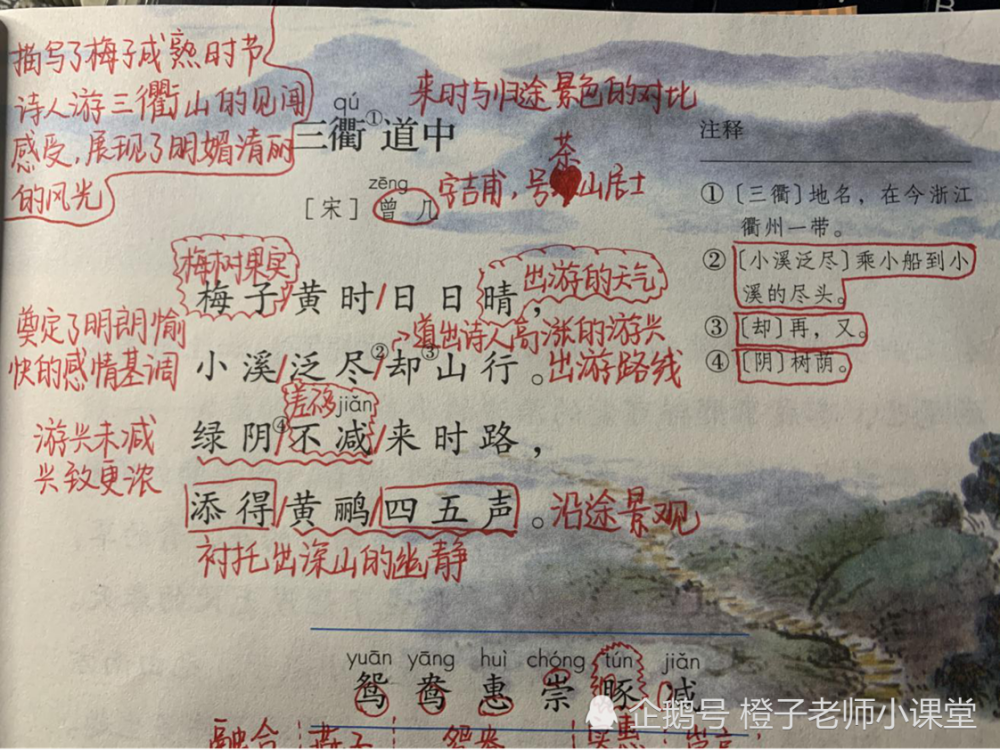 描写了梅子成熟时节
诗人游三衢山的见闻
感受,展现了明媚清丽
的风光
来时与归途景色的对比
qú
三衢①道中
注释
zēng
[宋] 曾 几
字吉甫,号茶山居士
①〔三衢〕地名,在今浙江
衢州一带。
②〔小溪泛尽〕乘小船到小
溪的尽头。
③〔却〕再,又。
④〔阴〕树荫。
梅树果实
出游的天气
梅子/黄时/日日晴,
奠定了明朗愉
快的感情基调
道出诗人高涨的游兴
小溪/泛尽②/却③山行。
出游路线
差不多
jiǎn
绿阴④/不减/来时路,
游兴未减
兴致更浓
添得/黄鹂/四五声。
沿途景观
衬托出深山的幽静
yuān yāng huì chóng tún jiǎn
鸳 鸯 惠 崇 豚 减
融合
燕子
鸳鸯
企鹅号 橙子老师小课堂